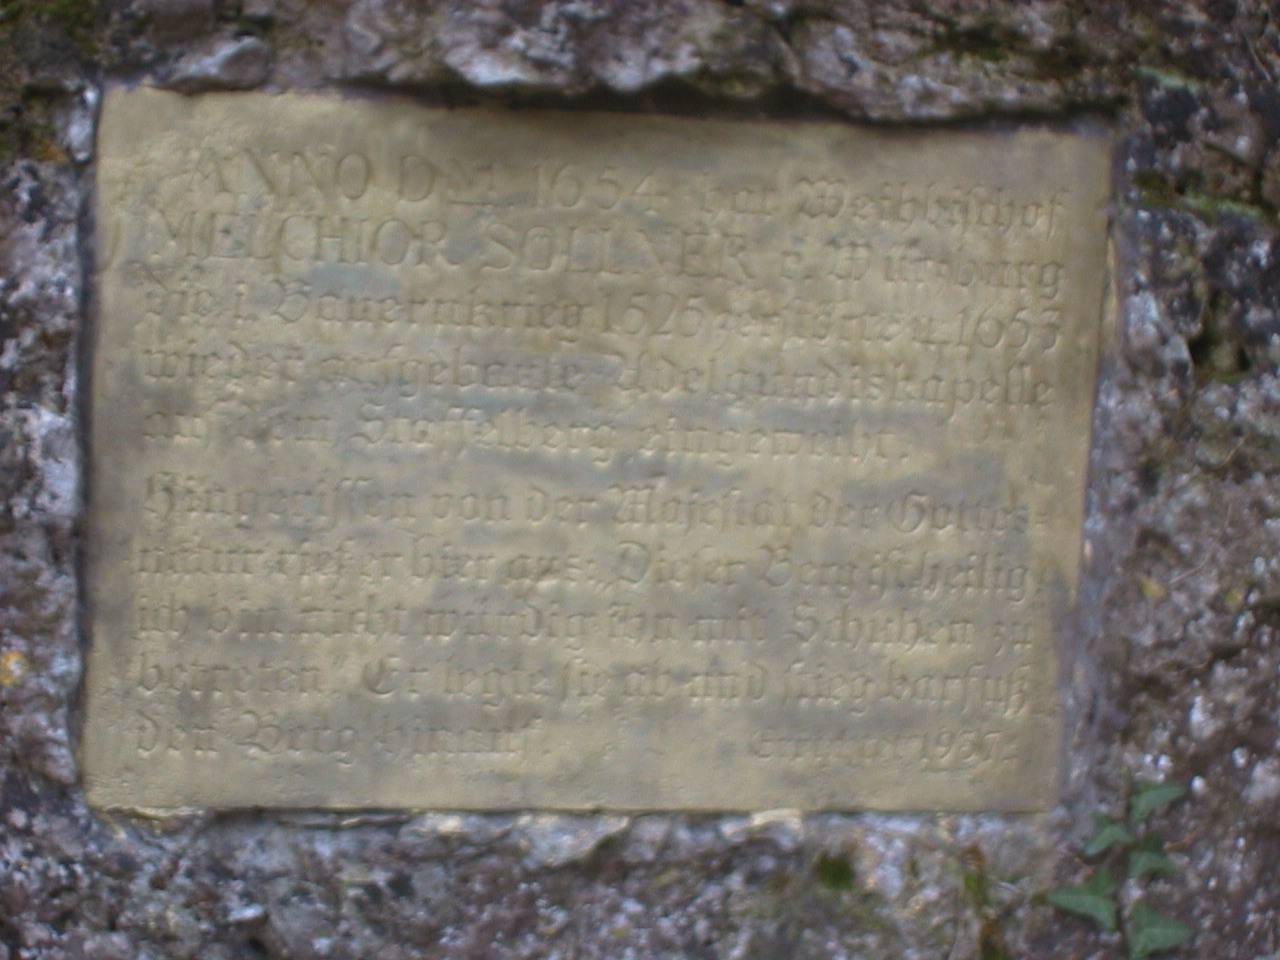 ANNO DNI 1654 hat Weihbischof
MELCHIOR SÖLLNER v. Würzburg
die i. Bauernkrieg 1525 zerstörte u. 1653
wieder aufgebaute Adelgundiskapelle
auf dem Staffelberg eingeweiht.
Hingerissen von der Majestät der Gottes-
natur rief er hier aus: „Dieser Berg ist heilig,
ich bin nicht würdig ihn mit Schuhen zu
betreten." Er legte sie ab und stieg barfuß
den Berg hinauf.
1937.